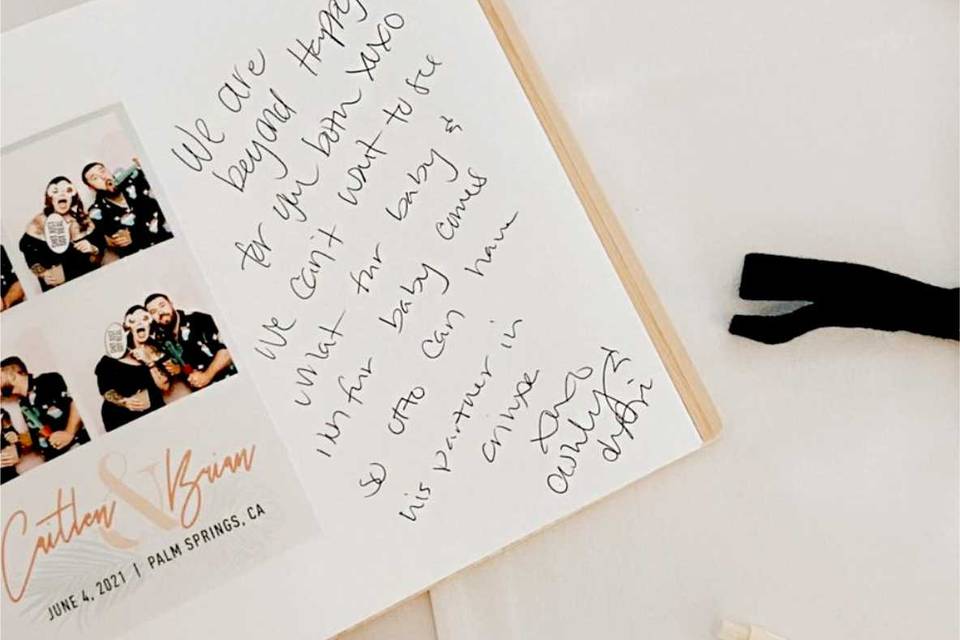 We are
beyond Happy
for you both xoxo
We can't wait to see
what fur baby &
infur baby comes
so otto can have
his partner in
crime
Caitlen & Brian
JUNE 4, 2021 | PALM SPRINGS, CA